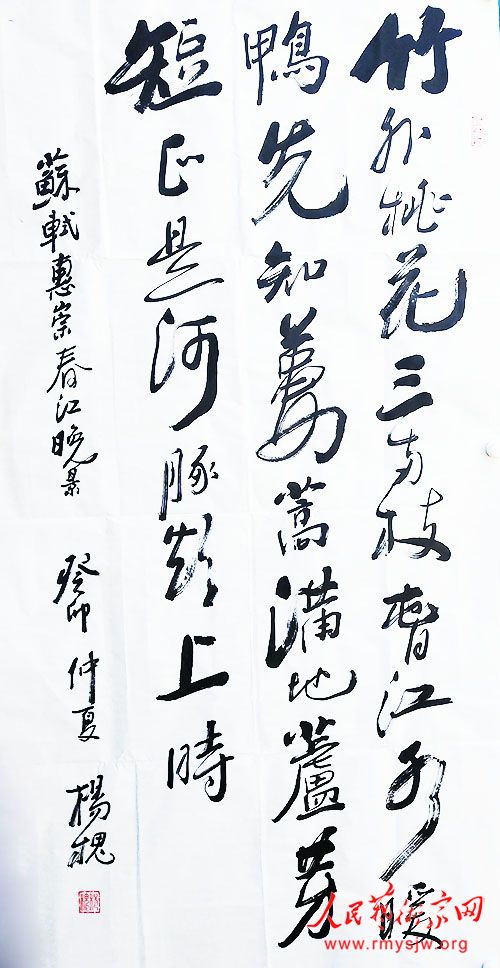 竹外桃花三两枝春江水暖
鴨先知蔞蒿滿地蘆芽
短正是河豚欲上時
蘇軾惠崇春江晚景 癸卯仲夏 楊槐
人民藝術家网
www.rmysjw.org